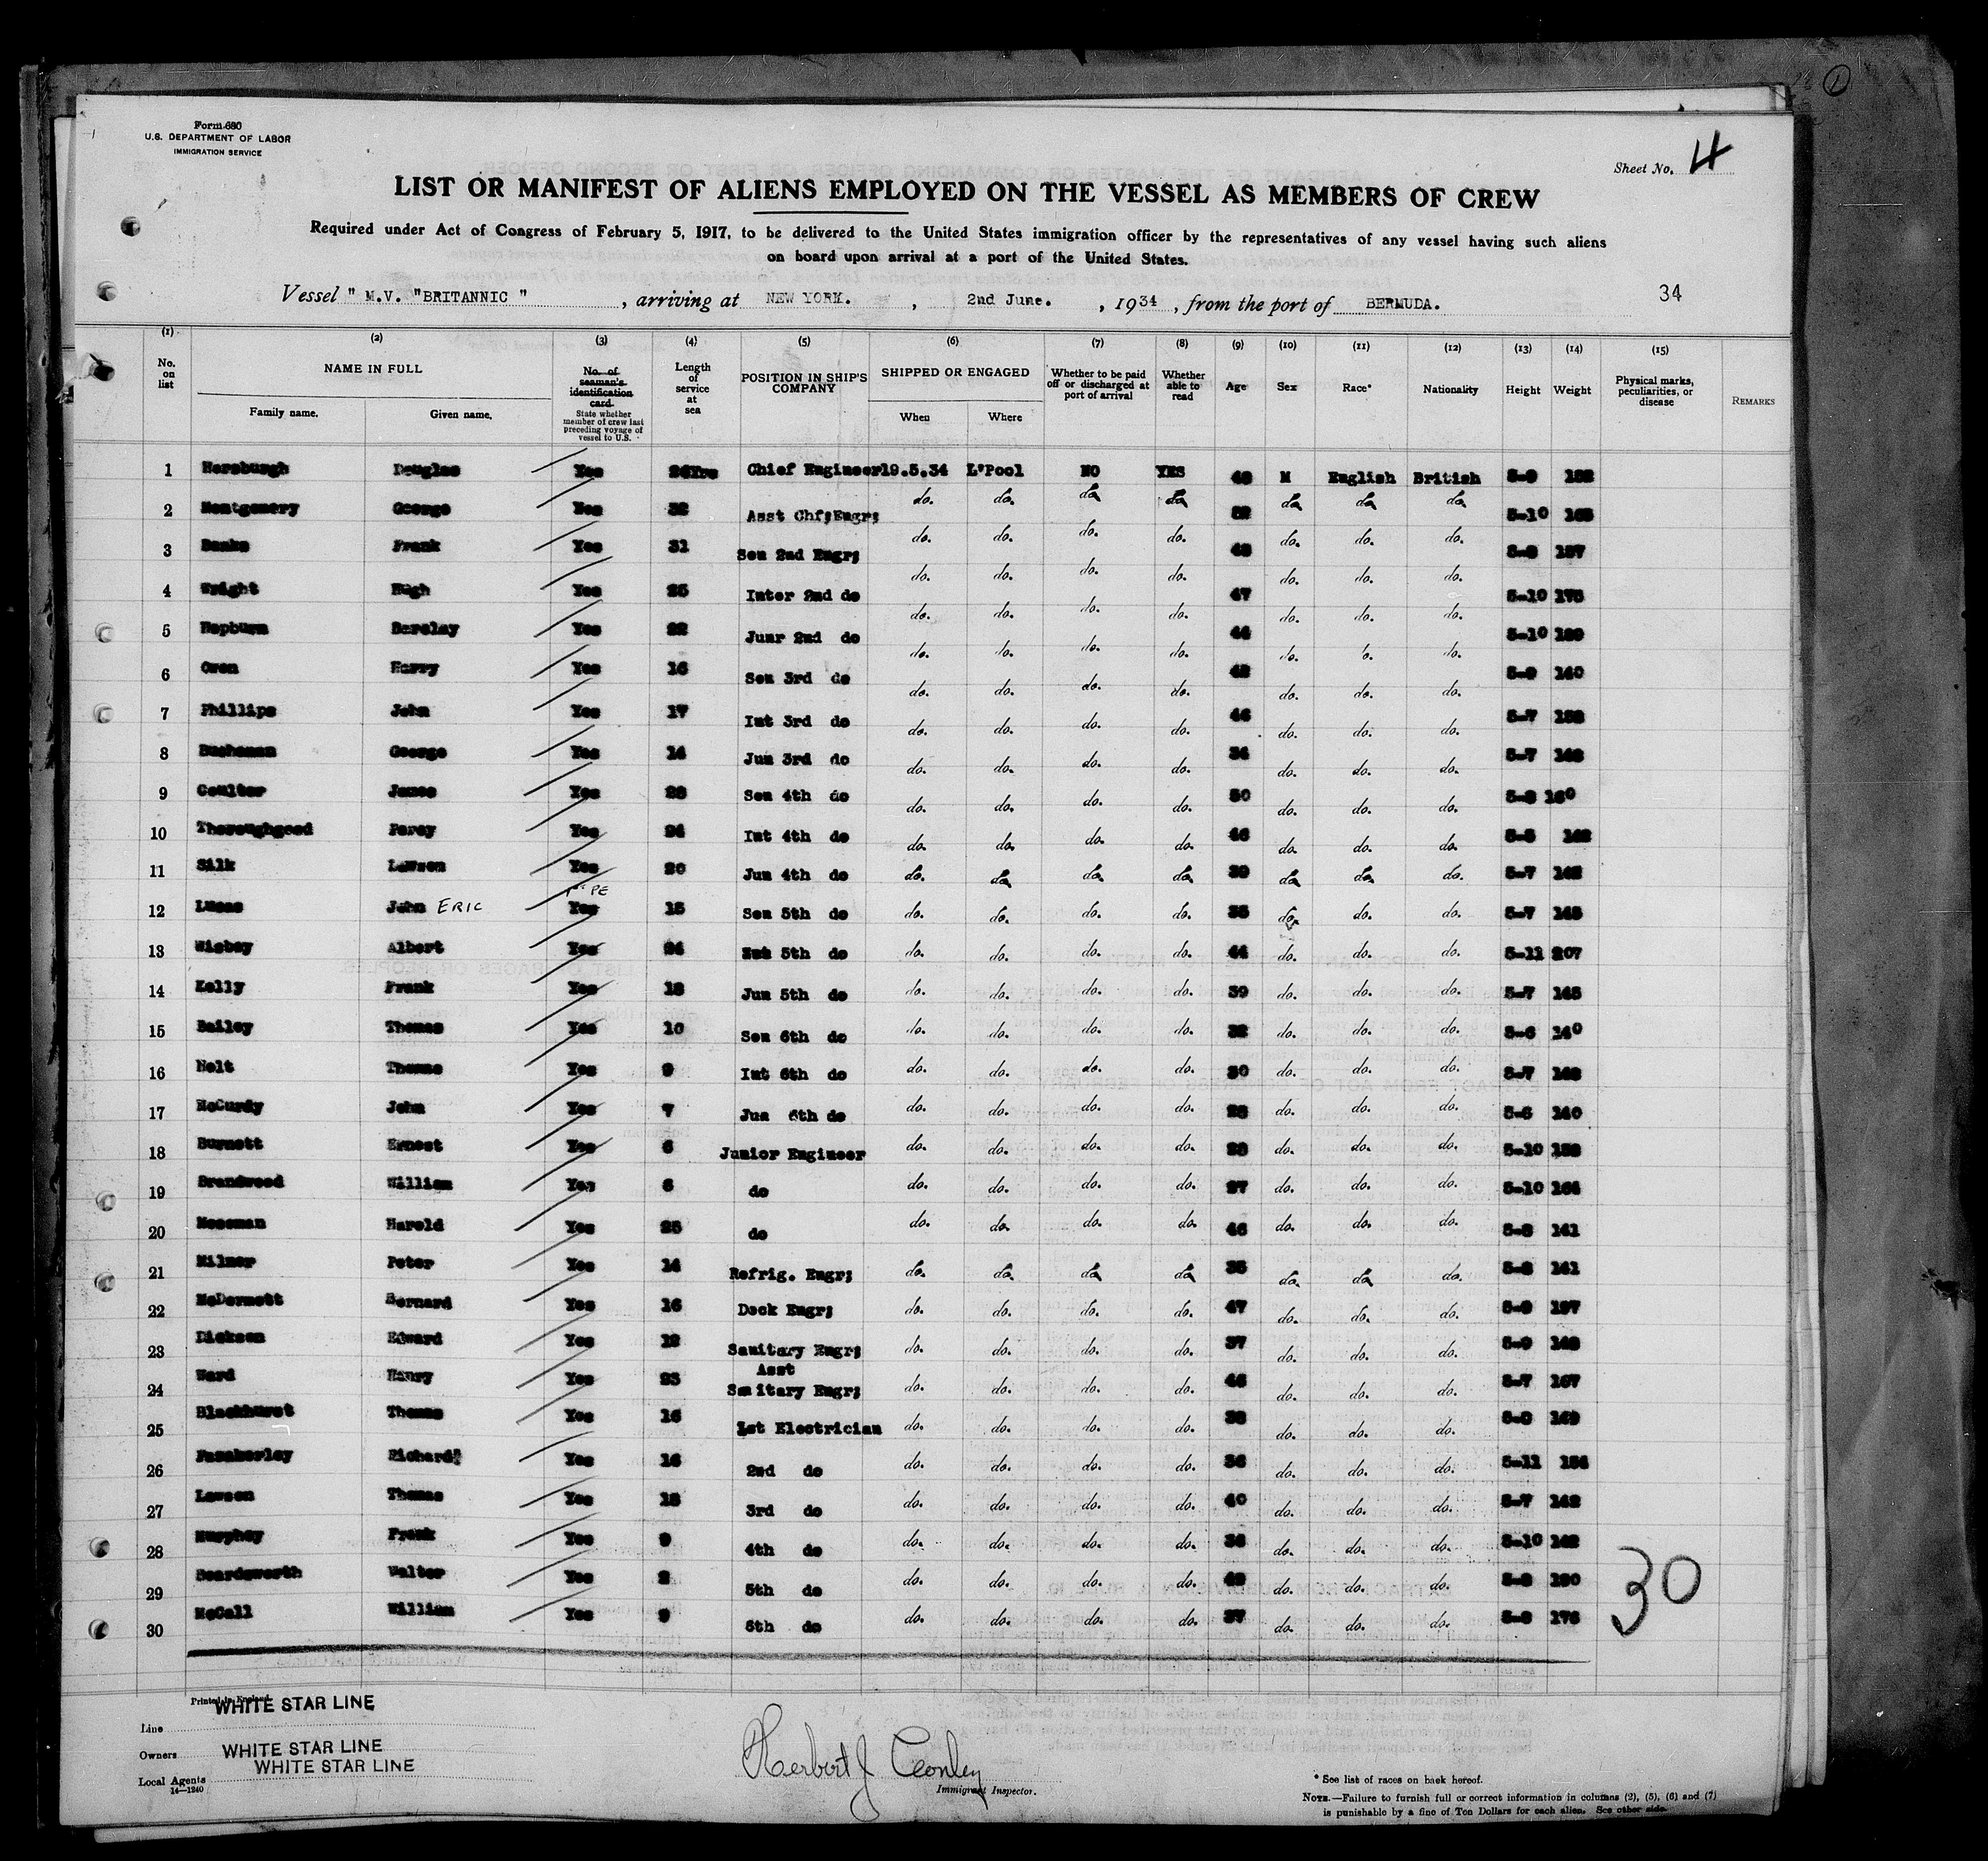 Form 680
U.S. DEPARTMENT OF LABOR
IMMIGRATION SERVICE
Sheet No. 4
LIST OR MANIFEST OF ALIENS EMPLOYED ON THE VESSEL AS MEMBERS OF CREW
Required under Act of Congress of February 5, 1917, to be delivered to the United States immigration officer by the representatives of any vessel having such aliens
on board upon arrival at a port of the United States.
Vessel " M.V. "BRITANNIC " , arriving at NEW YORK. , 2nd June. , 1934 , from the port of BERMUDA. 34
(1) (2) (3) (4) (5) (6) (7) (8) (9) (10) (11) (12) (13) (14) (15)
No. on list NAME IN FULL Family name. Given name. No. of seaman's identification card. State whether member of crew last preceding voyage of vessel to U.S. Length of service at sea POSITION IN SHIP'S COMPANY SHIPPED OR ENGAGED When Where Whether to be paid off or discharged at port of arrival Whether able to read Age Sex Race* Nationality Height Weight Physical marks, peculiarities, or disease REMARKS
1 Horsburgh Douglas Yes 26Yrs Chief Engineer 19.5.34 L'Pool NO YES M English British 5-9
2 Montgomery George Yes 32 Asst Chf;Engr; do. do. do do 52 do do do 5-10 165
3 Banks Frank Yes 31 Sen 2nd Engr; do. do. do. do. do. do. do. 5-8 157
4 Wright Hugh Yes 25 Inter 2nd do do. do. do. do. 47 do. do. do. 5-10 175
5 Hepburn Barclay Yes 22 Junr 2nd do do. do. do. do. 44 do. do. do. 5-10
6 Owen Harry Yes 16 Sen 3rd do do. do. do. do. 42 do. do. do. 5-9 140
7 Phillips John Yes 17 Int 3rd do do. do. do. do. 46 do. do. do. 5-7
8 Buchanan George Yes 14 Jun 3rd do do. do. do. do. 34 do. do. do. 5-7
9 Coulter James Yes 28 Sen 4th do do. do. do. do. 50 do. do. do. 5-8 160
10 Thoroughgood Percy Yes 24 Int 4th do do. do. do. do. 46 do. do. do. 142
11 Silk Lawson Yes 20 Jun 4th do do. do do do 39 do do do. 5-7 142
12 Lucas John ERIC Yes PE 15 Sen 5th do do. do. do. do. 35 do. do. do. 5-7 145
13 Wisbey Albert Yes 24 5th do do. do. do. do. 44 do. do. do. 5-11 207
14 Kelly Frank Yes 18 Jun 5th do do. do. do. do. 39 do. do. do. 5-7 145
15 Bailey Thomas Yes 10 Sen 6th do do. do. do. do. 32 do. do. do. 5-6 140
16 Holt Thomas Yes 9 Int 6th do do. do. do. do. 30 do. do. do. 5-7
17 McCurdy John Yes 7 Jun 6th do do. do. do. do. 28 do. do. do. 5-6 140
18 Burnett Ernest Yes 6 Junior Engineer do. do. do. do. 28 do. do. do. 5-10
19 Brandwood William Yes 6 do do. do. do. do. 27 do. do. do. 5-10 164
20 Moseman Harold Yes 25 do do. do. do. do. 46 do. do. do. 5-8 141
21 Milner Peter Yes 14 Refrig. Engr; do. do do do 35 do. do do. 5-8 141
22 McDermott Bernard Yes 16 Deck Engr; do. do. do. do. 47 do. do. do. 5-9 197
23 Dickson Edward Yes 12 Sanitary Engr; do. do. do. do. 37 do. do. do. 5-9
24 Ward Henry Yes 23 Asst Sanitary Engr; do. do. do. do. 46 do. do. do. 5-7 167
25 Blackhurst Thomas Yes 16 1st Electrician do. do. do. do. 38 do. do. do. 169
26 Fazakerley Richard Yes 14 2nd do do. do. do. do. 36 do. do. do. 5-11
27 Lawson Thomas Yes 18 3rd do do. do. do. do. 40 do. do. do. 5-7 142
28 Murphey Frank Yes 9 4th do do. do. do. do. do. do. do. 5-10 142
29 Beardsworth Walter Yes 2 5th do do. do. do. do. do. do. do. 5-8
30 McCall William Yes 9 6th do do. do. do. do. 37 do. do. do. 176
30
Printed in England
Line WHITE STAR LINE
Owners WHITE STAR LINE
Local Agents WHITE STAR LINE
14—1240
Herbert J Conley
Immigrant Inspector.
* See list of races on back hereof.
NOTE.—Failure to furnish full or correct information in columns (2), (5), (6) and (7)
is punishable by a fine of Ten Dollars for each alien. See other side.